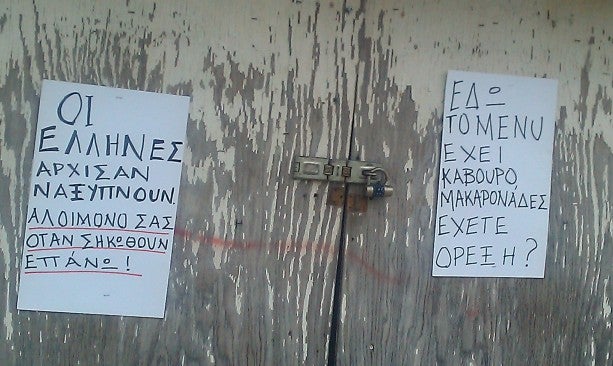 ΟΙ
ΕΛΛΗΝΕΣ
ΑΡΧΙΣΑΝ
ΝΑΞΥΠΝΟΥΝ.
ΑΛΟΙΜΟΝΟ ΣΑΣ
ΟΤΑΝ ΣΗΚΩΘΟΥΝ
ΕΠΑΝΩ!
ΕΔΩ
ΤΟ ΜΕΝU
ΕΧΕΙ
ΚΑΒΟΥΡΟ,
ΜΑΚΑΡΟΝΑΔΕΣ
ΕΧΕΤΕ
ΟΡΕΞΗ?